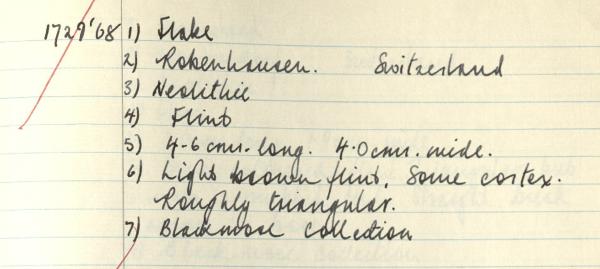 1729'68 1) Flake
2) Robenhausen. Switzerland
3) Neolithic
4) Flint
5) 4.6 cms. long. 4.0 cms. wide.
6) Light brown flint. Some cortex.
Roughly triangular.
7) Blackmore Collection